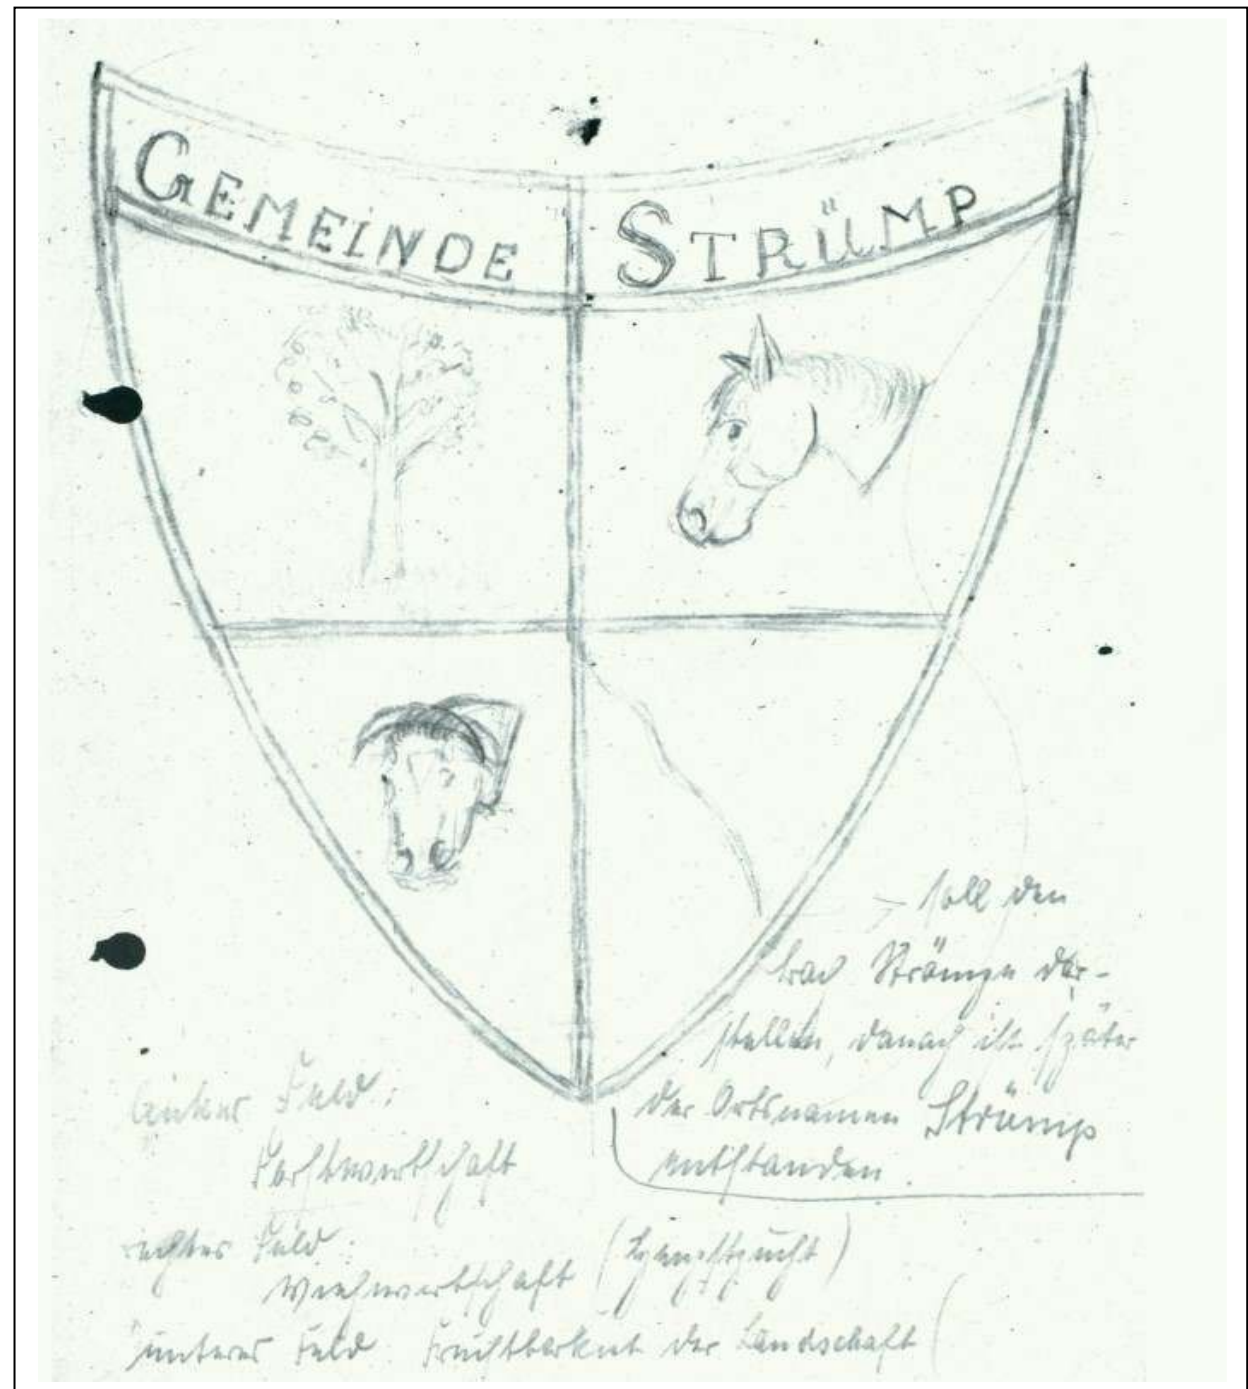 GEMEINDE STRÜMP
soll den
Strömpe dar-
stellen, danach ist später
der Ortsnamen Strümp
entstanden.
linkes Feld:
Forstwirtschaft
rechtes Feld:
Viehwirtschaft (Hengstzucht)
unteres Feld Fruchtbarkeit der Landschaft